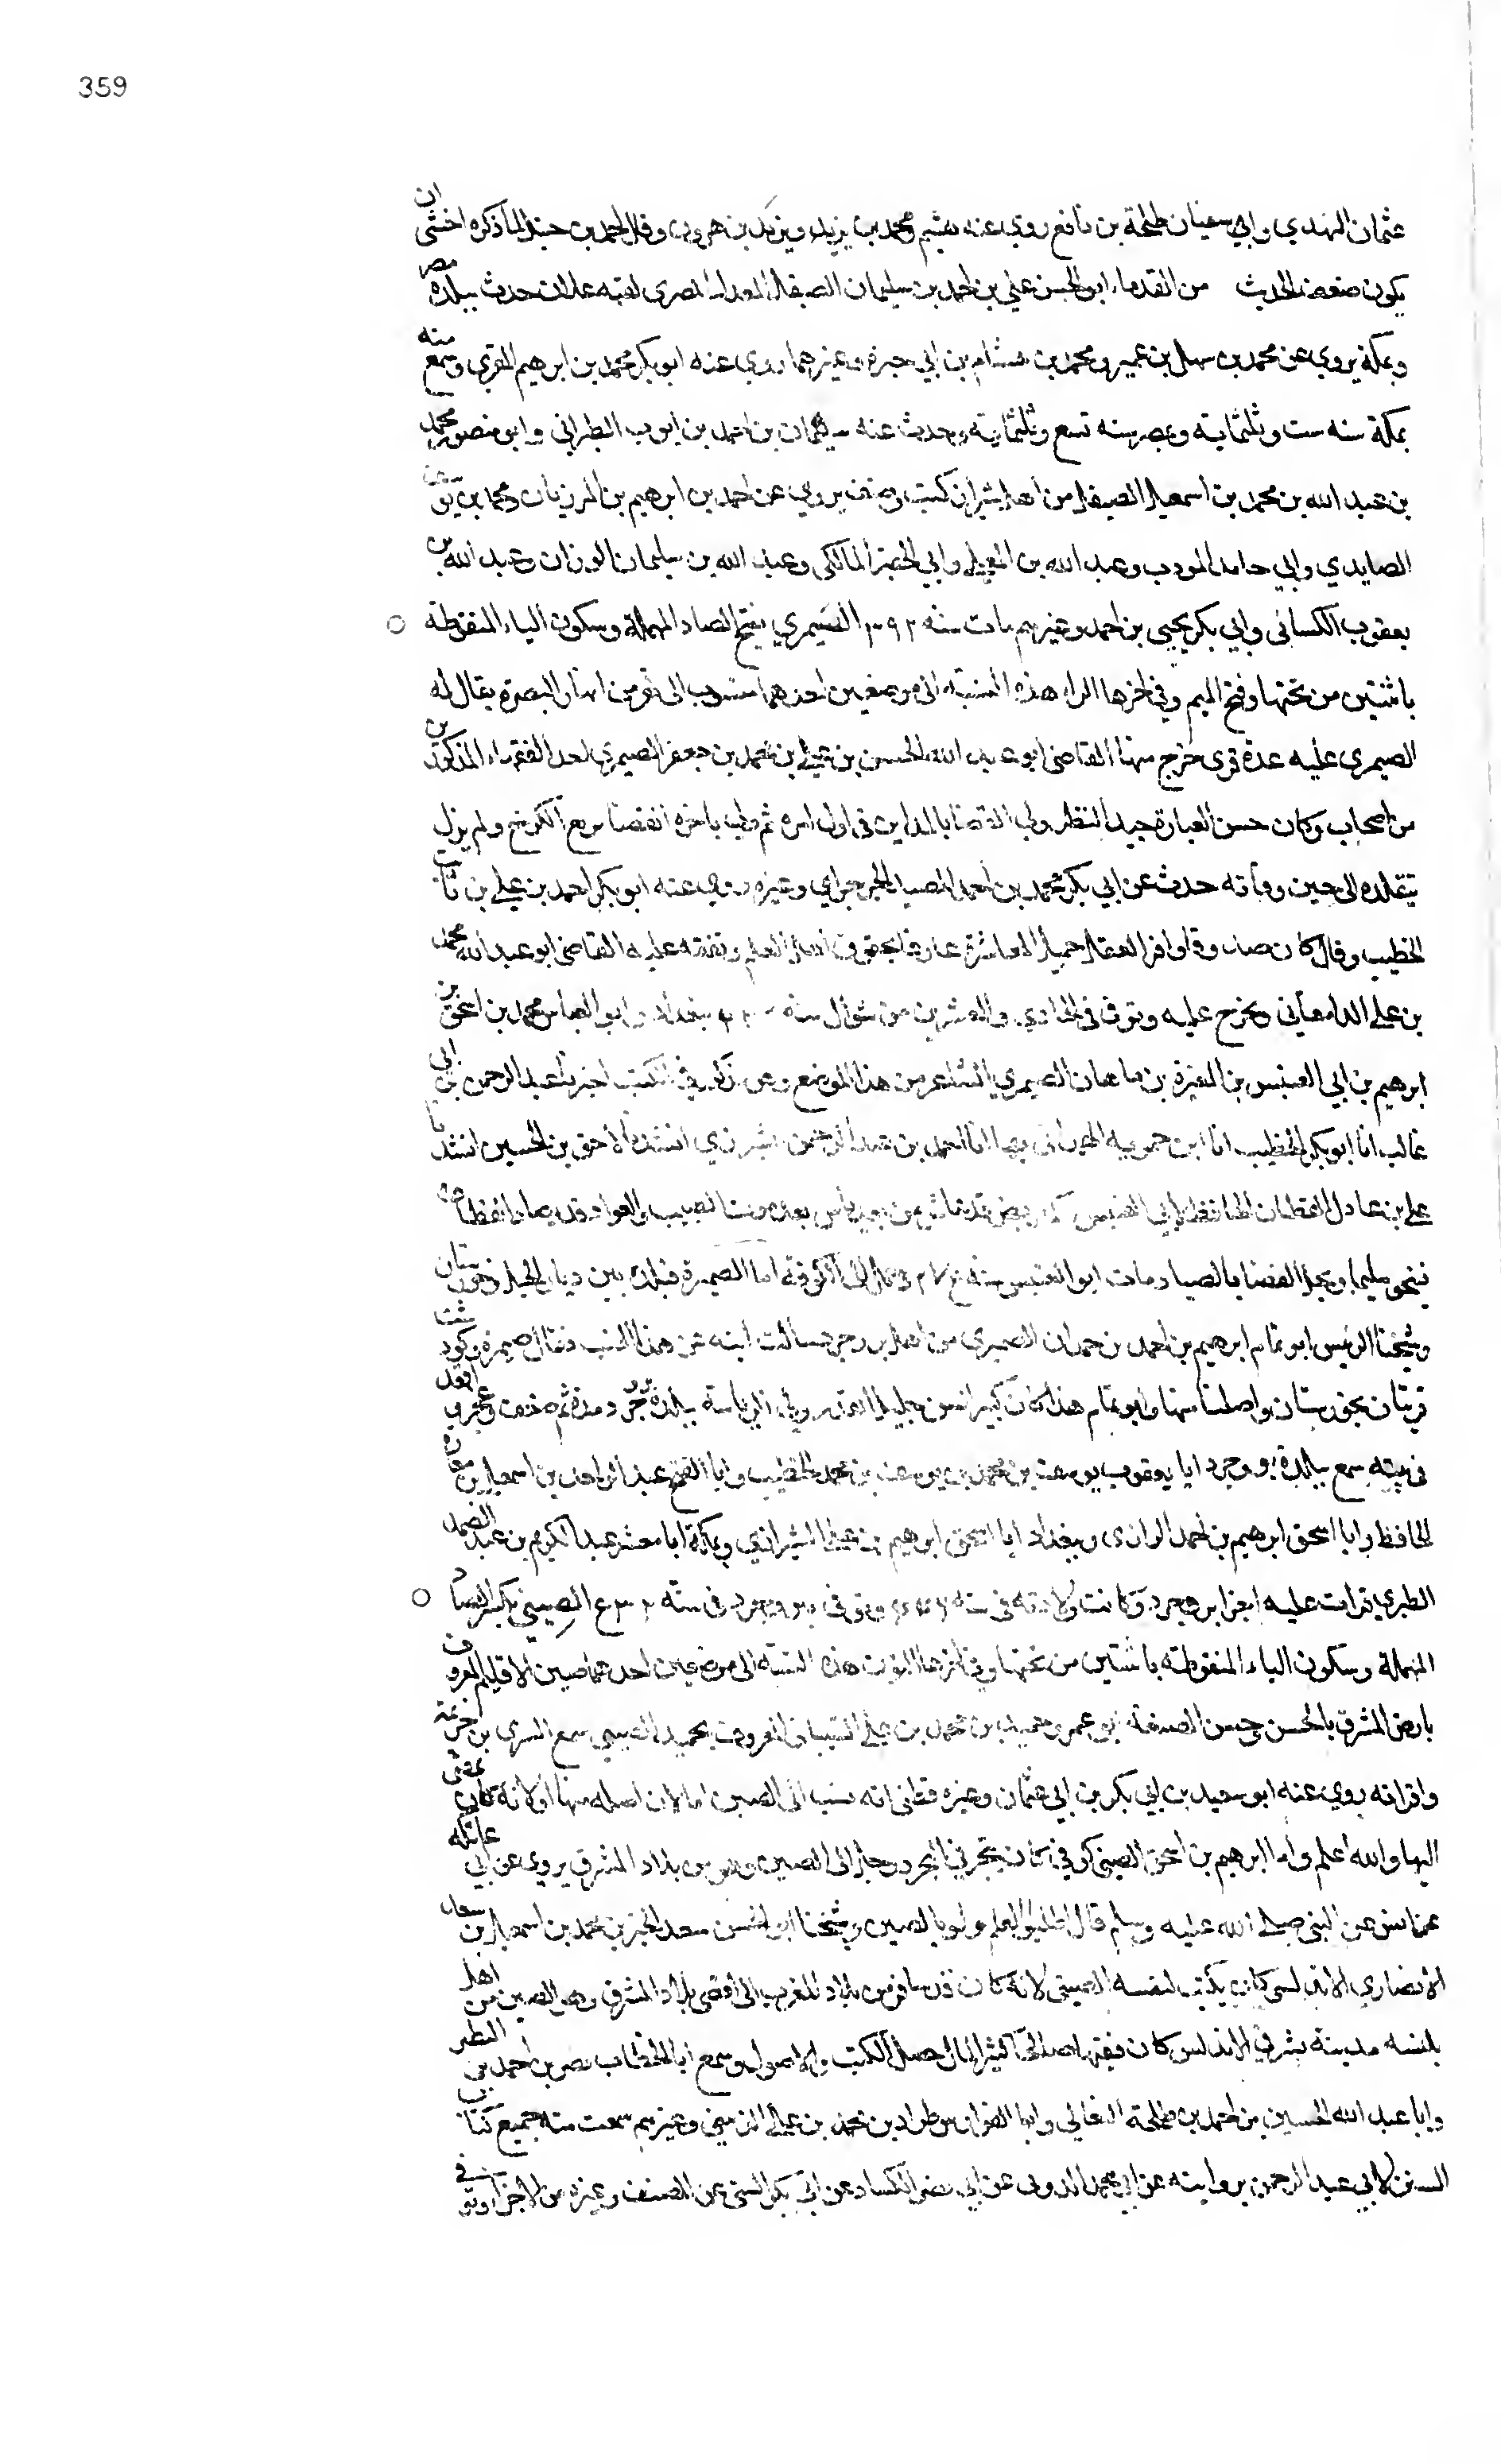 359
عثمان النهدي وابي سفيان طلحة بن نافع روى عنه هشيم ومحمد بن يزيد ويزيد بن هرون وقال احمد بن حنبل لما ذكره اخشى ان
يكون ضعيف الحديث من القدماء ابو الحسن علي بن احمد بن سليمان الصيقل المعدل المصرى لقبه علان حدث ببلده مصر
وبمكة يروي عن محمد بن سهل بن عمير ومحمد بن هشام بن ابي خيرة وغيرهما روى عنه ابو بكر محمد بن ابرهيم المقرى وسمع منه
بمكة سنه ست وثلثماية وبمصر سنه تسع وثلثماية وحدث عنه سليمان بن احمد بن ايوب الطبراني وابو منصور محمد
بن عبد الله بن محمد بن اسمعيل الصيقل من اهل شيراز كتب وصنف يروي عن احمد بن ابرهيم بن المرزبان ومحمد بن
الصايدي وابي حامد المودب وعبد الله بن وابي المالكى وعبد الله بن سليمان الوزان وعبد الله بن
يعقوب الكسائى وابي بكر يحيى بن احمد وغيرهم مات سنه ٣٩٣ الصَيمري بفتح الصاد المهملة وسكون الياء المنقوطه
باثنتين من تحتها وفتح الميم وفي اخرها الراء هذه النسبة الى موضعين احدهما منسوب الى نهر من انهار البصرة يقال له
الصيمرى عليه عدة قرى خرج منها القاضى ابو عبد الله الحسين بن علي بن محمد بن جعفر الصيمري احد الفقهاء المذكورين
من اصحاب وكان حسن العبارة جيد النظر ولي القضا بالمداين فى اول امره ثم ولي باخره القضا بربع الكرخ ولم يزل
يتقلده الى حين وفاته حدث عن ابي بكر محمد بن احمد المفيد الجرجراي وغيره روى عنه ابو بكر احمد بن علي بن ثابت
الخطيب وقال كان صدوقا وافر العقل جميل المعاشرة عارفا بحقوق اهل العلم وتفقه عليه القاضى ابو عبد الله محمد
بن علي الدامغاني وتخرج عليه وتوفى فى الحادي والعشرين من شوال سنه ببغداد وابو العباس محمد بن اسحق بن
ابرهيم بن ابي العنبس بن المغيرة بن ماهان الصيمري الشاعر من هذا الموضع في الكتب اخبرنا عبد الرحمن بن ابي
غالب انا ابو بكر الخطيب انا ابن حمويه الهمداني بها انا احمد بن عبد الرحمن الشيرازي انشدنا لاحق بن الحسين انشدنا
علي بن عادل القطان الحافظ لابي العنبس كم مريض قد عاش من بعد يأس بعد موت الطبيب والعواد قد يصاد القطا
فينجو سليما ويحل القضا بالصياد ومات ابو العنبس سنه الى الكوفة اما الصيمرة فبلدة بين ديار الجبل وخوزستان
وشيخنا الرئيس ابو تمام ابرهيم بن احمد بن حمدان الصيمرى من اهل بروجرد سالت ابنه عن هذا النسب فقال صيمرة وكودشت
قريتان بخوزستان واصلنا منها وابو تمام هذا كان كبيرا من جليل القدر وولي الرياسة ببلده بروجرد مدة ثم ضعف وعجز وقعد
فى بيته سمع ببلدة بروجرد ابا يعقوب يوسف بن محمد بن يوسف الخطيب وابا الفتح عبد الواحد بن اسمعيل بن
الحافظ وابا اسحق ابرهيم بن احمد الرازى وببغداد ابا اسحق ابرهيم بن علي الشيرازي وبمكة ابا معشر عبد الكريم بن عبد الصمد
الطبري قرات عليه اجزا ببروجرد وكانت ولادته فى سنه وتوفى ببروجرد فى سنه الصِيني بكسر الصاد
المهملة وسكون الياء المنقوطة باثنتين من تحتها وفي اخرها النون هذه النسبة الى موضعين احدهما صين الاقليم المعروف
بارض المشرق بالحسن وحسن الصنعة ابو عمرو حميد بن محمد بن علي الشيباني المعروف بحميد الصيني سمع السرى بن خزيمة
واقرانه روى عنه ابو سعيد بن ابي بكر بن ابي عثمان وغيره فظنى انه نسب الى الصين اما لان اصله منها او لانه كان يمضى
اليها والله اعلم واما ابرهيم بن اسحق الصيني كوفي كان يتجر في البحر ورحل الى الصين وهو من بلاد المشرق يروى عن ابي عاتكه
عن انس عن النبي صلى الله عليه وسلم قال اطلبوا العلم ولو بالصين وشيخنا ابو الحسن سعد الخير بن محمد بن اسمعيل بن سعد
الانصاري الاندلسى كان يكتب لنفسه الصينى لانه كان قد سافر من بلاد المغرب الى أقصى بلاد المشرق وهو الصين من اهل
بلنسه مدينة بشرقي الاندلس كان فقيها صالحًا كثير المال حصل الكتب والاصول وسمع ابا الخطاب نصر بن احمد بن البطر
وابا عبد الله الحسين بن احمد بن طلحة النعالي وابا الفوارس طراد بن محمد بن علي الزينبي وغيرهم سمعت منه جميع كتاب
السنن لابي عبد الرحمن بروايته عن ابي محمد الدوني عن ابي نصر الكسار عن ابي بكر السني عن المصنف وغيره من الاجزا وتوفي